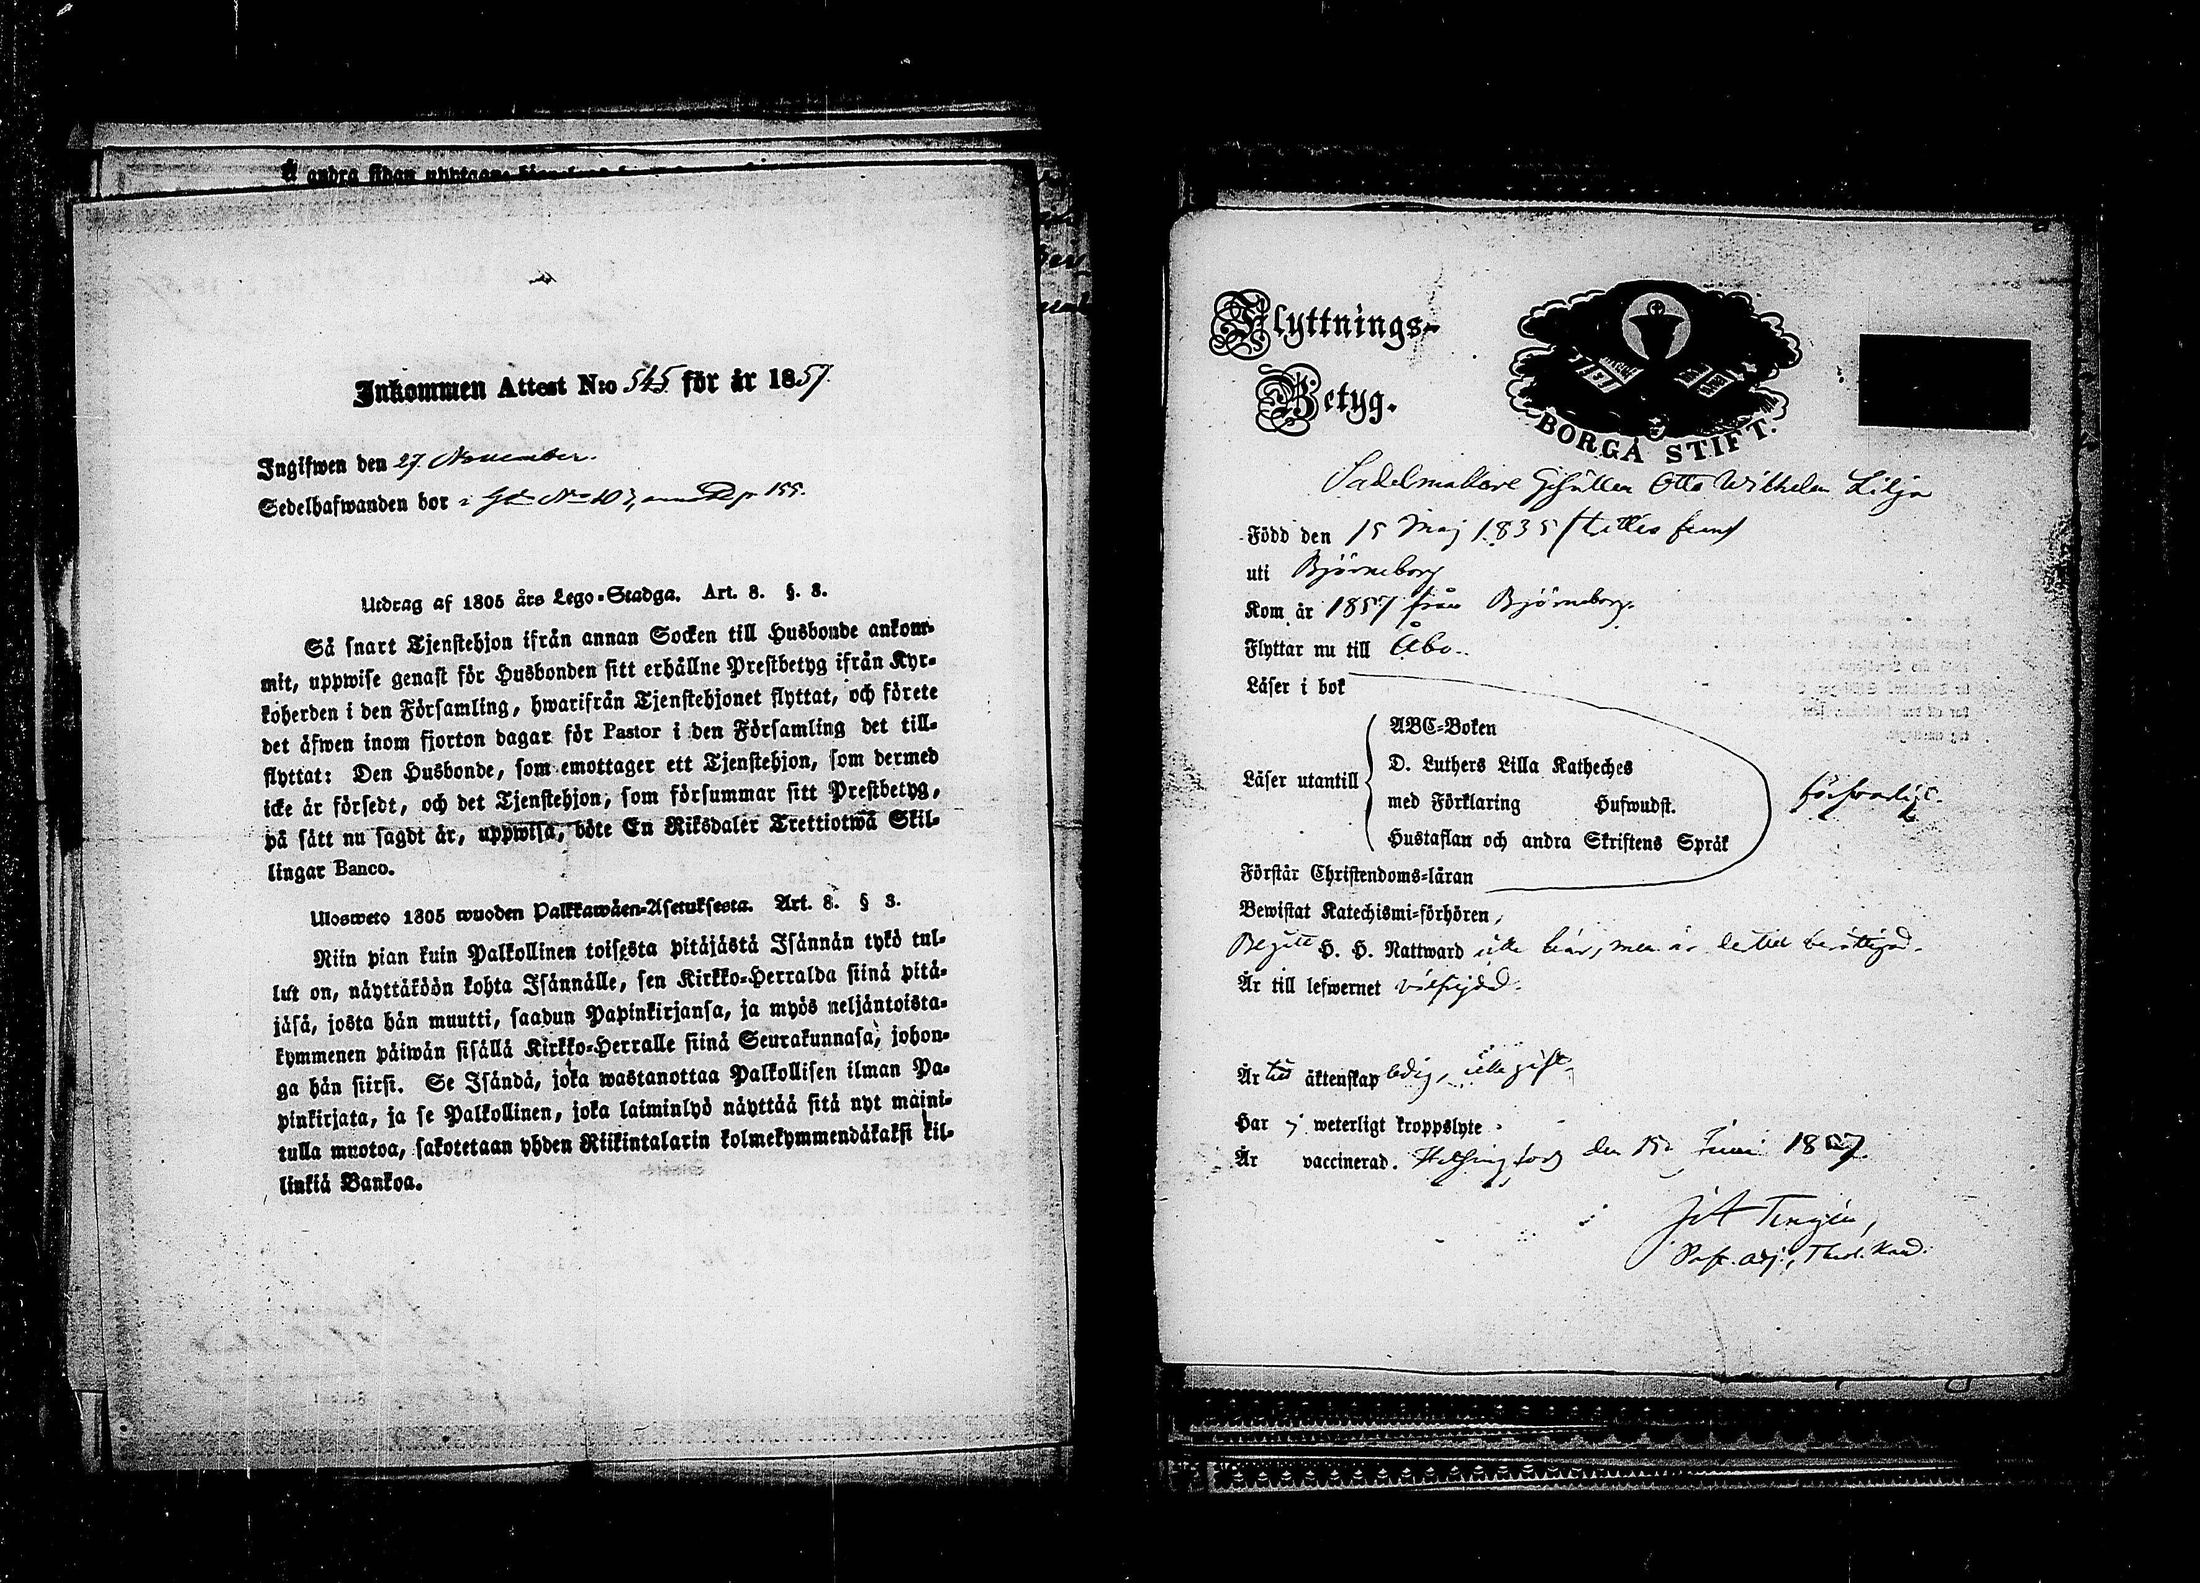 Å andra sidan upptagne
Inkommen Attest N:o 545 för år 1857.
Ingifwen den 27 November.
Sedelhafwanden bor i Gd No 10, 155.
Utdrag af 1805 års Lego-Stadga. Art. 8. §. 3.
Så snart Tjenstehjon ifrån annan Socken till Husbonde ankom-
mit, uppwise genast för Husbonden sitt erhållne Prestbetyg ifrån Kyr-
koherden i den Församling, hwarifrån Tjenstehjonet flyttat, och förete
det äfwen inom fjorton dagar för Pastor i den Församling det till-
flyttat: Den Husbonde, som emottager ett Tjenstehjon, som dermed
icke är försedt, och det Tjenstehjon, som försummar sitt Prestbetyg,
på sätt nu sagdt är, uppwisa, böte En Riksdaler Trettiotwå Skil-
lingar Banco.
Ulosweto 1805 wuoden Palkkawäen-Asetuksesta. Art. 8. § 3.
Niin pian kuin Palkollinen toisesta pitäjästä Isännän tykö tul-
lut on, näyttäköön kohta Isännälle, sen Kirkko-Herralda siinä pitä-
jäsä, josta hän muutti, saadun Papinkirjansa, ja myös neljäntoista-
kymmenen päiwän sisällä Kirkko-Herralle siinä Seurakunnasa, johon-
ga hän siirsi. Se Isändä, joka wastanottaa Palkollisen ilman Pa-
pinkirjata, ja se Palkollinen, joka laiminlyö näyttää sitä nyt maini-
tulla muotoa, sakotetaan yhden Riikintalarin kolmekymmendäkaksi kil-
linkiä Bankoa.
Flyttnings-
Betyg.
BORGÅ STIFT.
Sadelmakare Gesällen Otto Wilhelm Lilja
Född den 15 Maj 1835
uti Björneborg
Kom år 1857 från Björneborg.
Flyttar nu till Åbo.
Läser i bok
Läser utantill
ABC-Boken
D. Luthers Lilla Katheches
med Förklaring Hufwudst.
Hustaflan och andra Skriftens Språk
försvarligt.
Förstår Christendoms-läran
Bewistat Katechismi-förhören,
Begått H. H. Nattward icke här, men är dertill berättigad.
Är till lefwernet välfrejdad.
Är till äktenskap ledig, icke gift.
Har ej weterligt kroppslyte.
Är vaccinerad. Helsingfors den 15 Juni 1857.
J A Tengén,
Past. adj., Theol. Kand.